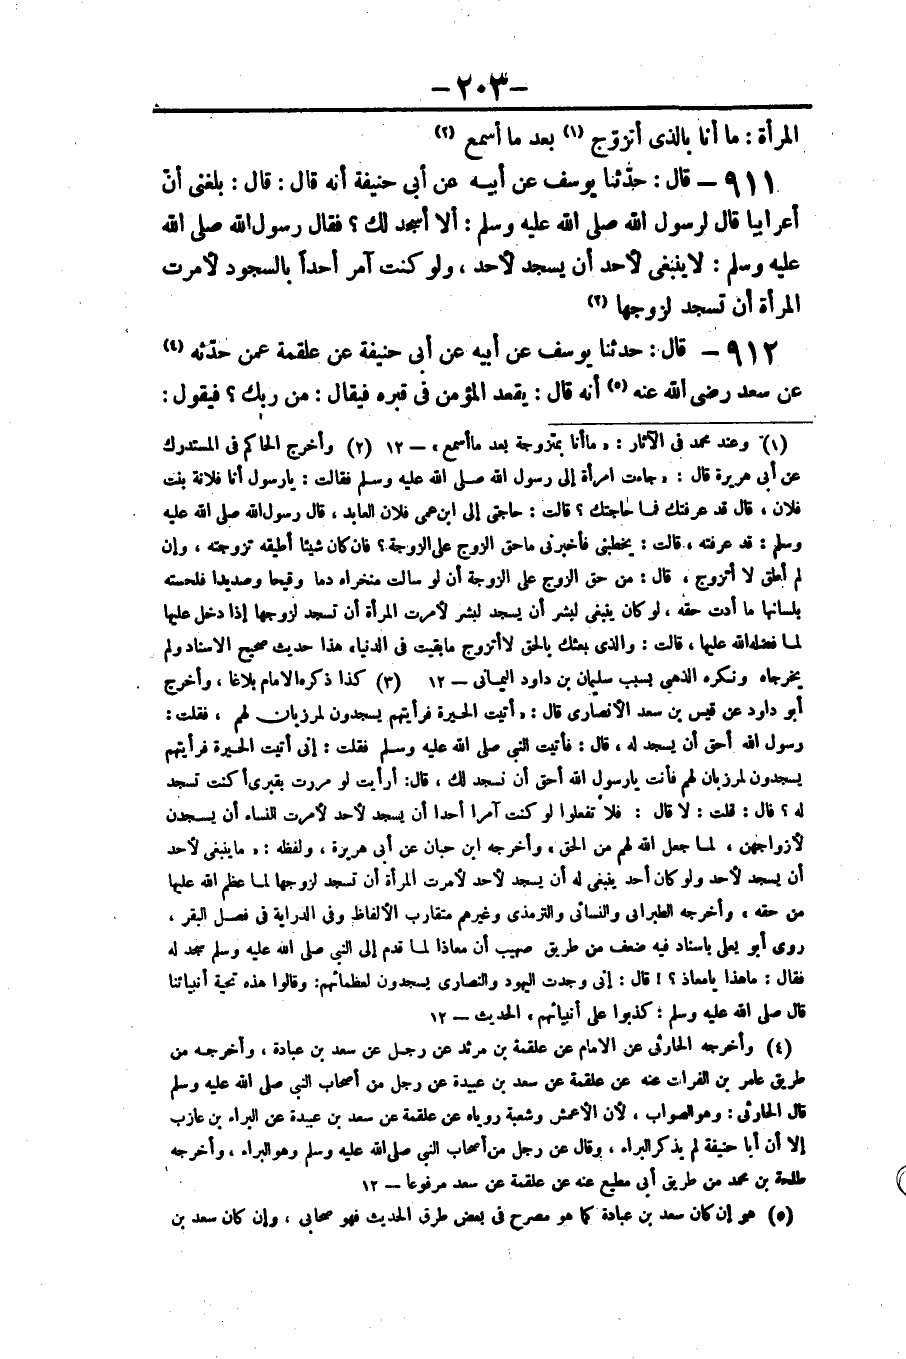 -٢٠٣-
المرأة : ما أنا بالذى أتزوّج (١) بعد ما أسمع (٢)
٩١١ – قال : حدّثنا يوسف عن أبيه عن أبى حنيفة أنه قال : قال : بلغنى أنّ
أعرابيا قال لرسول الله صلى الله عليه وسلم : ألا أسجد لك ؟ فقال رسول الله صلى الله
عليه وسلم : لا ينبغى لأحد أن يسجد لأحد ، ولو كنت آمر أحداً بالسجود لأمرت
المرأة أن تسجد لزوجها (٣)
٩١٢ – قال : حدثنا يوسف عن أبيه عن أبى حنيفة عن علقمة عمن حدّثه (٤)
عن سعد رضى الله عنه (٥) أنه قال : يقعد المؤمن فى قبره فيقال : من ربك ؟ فيقول :
(١) وعند محمد فى الآثار : « ماأنا بمتزوجة بعد ماأسمع » – ١٢ (٢) وأخرج الحاكم فى المستدرك
عن أبى هريرة قال : « جاءت امرأة إلى رسول الله صلى الله عليه وسلم فقالت : يارسول أنا فلانة بنت
فلان ، قال قد عرفتك فما حاجتك ؟ قالت : حاجتى إلى ابن عمى فلان العابد ، قال رسول الله صلى الله عليه
وسلم : قد عرفته ، قالت : يخطبنى فأخبرنى ماحق الزوج على الزوجة ؟ فان كان شيئا أطيقه تزوجته ، وإن
لم أطق لا أتزوج ، قال : من حق الزوج على الزوجة أن لو سالت منخراه دما وقيحا وصديدا فلحسته
بلسانها ما أدت حقه ، لو كان ينبغى لبشر أن يسجد لبشر لأمرت المرأة أن تسجد لزوجها إذا دخل عليها
لما فضله الله عليها ، قالت : والذى بعثك بالحق لا أتزوج مابقيت فى الدنيا » هذا حديث صحيح الاسناد ولم
يخرجاه ونكره الذهبى بسبب سليمان بن داود اليمانى – ١٢ (٣) كذا ذكره الامام بلاغا ، وأخرج
أبو داود عن قيس بن سعد الأنصارى قال : « أتيت الحيرة فرأيتهم يسجدون لمرزبان لهم ، فقلت :
رسول الله أحق أن يسجد له ، قال : فأتيت النبى صلى الله عليه وسلم فقلت : إنى أتيت الحيرة فرأيتهم
يسجدون لمرزبان لهم فأنت يارسول الله أحق أن نسجد لك ، قال : أرأيت لو مررت بقبرى أكنت تسجد
له ؟ قال : قلت : لا قال : فلا تفعلوا لو كنت آمرا أحدا أن يسجد لأحد لأمرت النساء أن يسجدن
لأزواجهن ، لما جعل الله لهم من الحق » وأخرجه ابن حبان عن أبى هريرة ، ولفظه : « ماينبغى لأحد
أن يسجد لأحد ولو كان أحد ينبغى له أن يسجد لأحد لأمرت المرأة أن تسجد لزوجها لما عظم الله عليها
من حقه » وأخرجه الطبرانى والنسائى والترمذى وغيرهم متقارب الألفاظ وفى الدراية فى فصل البقر ،
روى أبو يعلى باسناد فيه ضعف من طريق صهيب أن معاذا لما قدم إلى النبى صلى الله عليه وسلم سجد له
فقال : ماهذا يامعاذ ؟ ! قال : إنى وجدت اليهود والنصارى يسجدون لعظمائهم : وقالوا هذه تحية أنبيائنا
قال صلى الله عليه وسلم : كذبوا على أنبيائهم ، الحديث – ١٢
(٤) وأخرجه الحارثى عن الامام عن علقمة بن مرثد عن رجل عن سعد بن عبادة ، وأخرجه من
طريق عامر بن الفرات عنه عن علقمة عن سعد بن عبيدة عن رجل من أصحاب النبى صلى الله عليه وسلم
قال الحارثى : وهو الصواب ، لأن الأعمش وشعبة روياه عن علقمة عن سعد بن عبيدة عن البراء بن عازب
إلا أن أبا حنيفة لم يذكر البراء ، وقال عن رجل من أصحاب النبى صلى الله عليه وسلم وهو البراء ، وأخرجه
طلحة بن محمد من طريق أبى مطيع عنه عن علقمة عن سعد مرفوعا – ١٢
(٥) هو إن كان سعد بن عبادة كما هو مصرح فى بعض طرق الحديث فهو صحابى ، وإن كان سعد بن